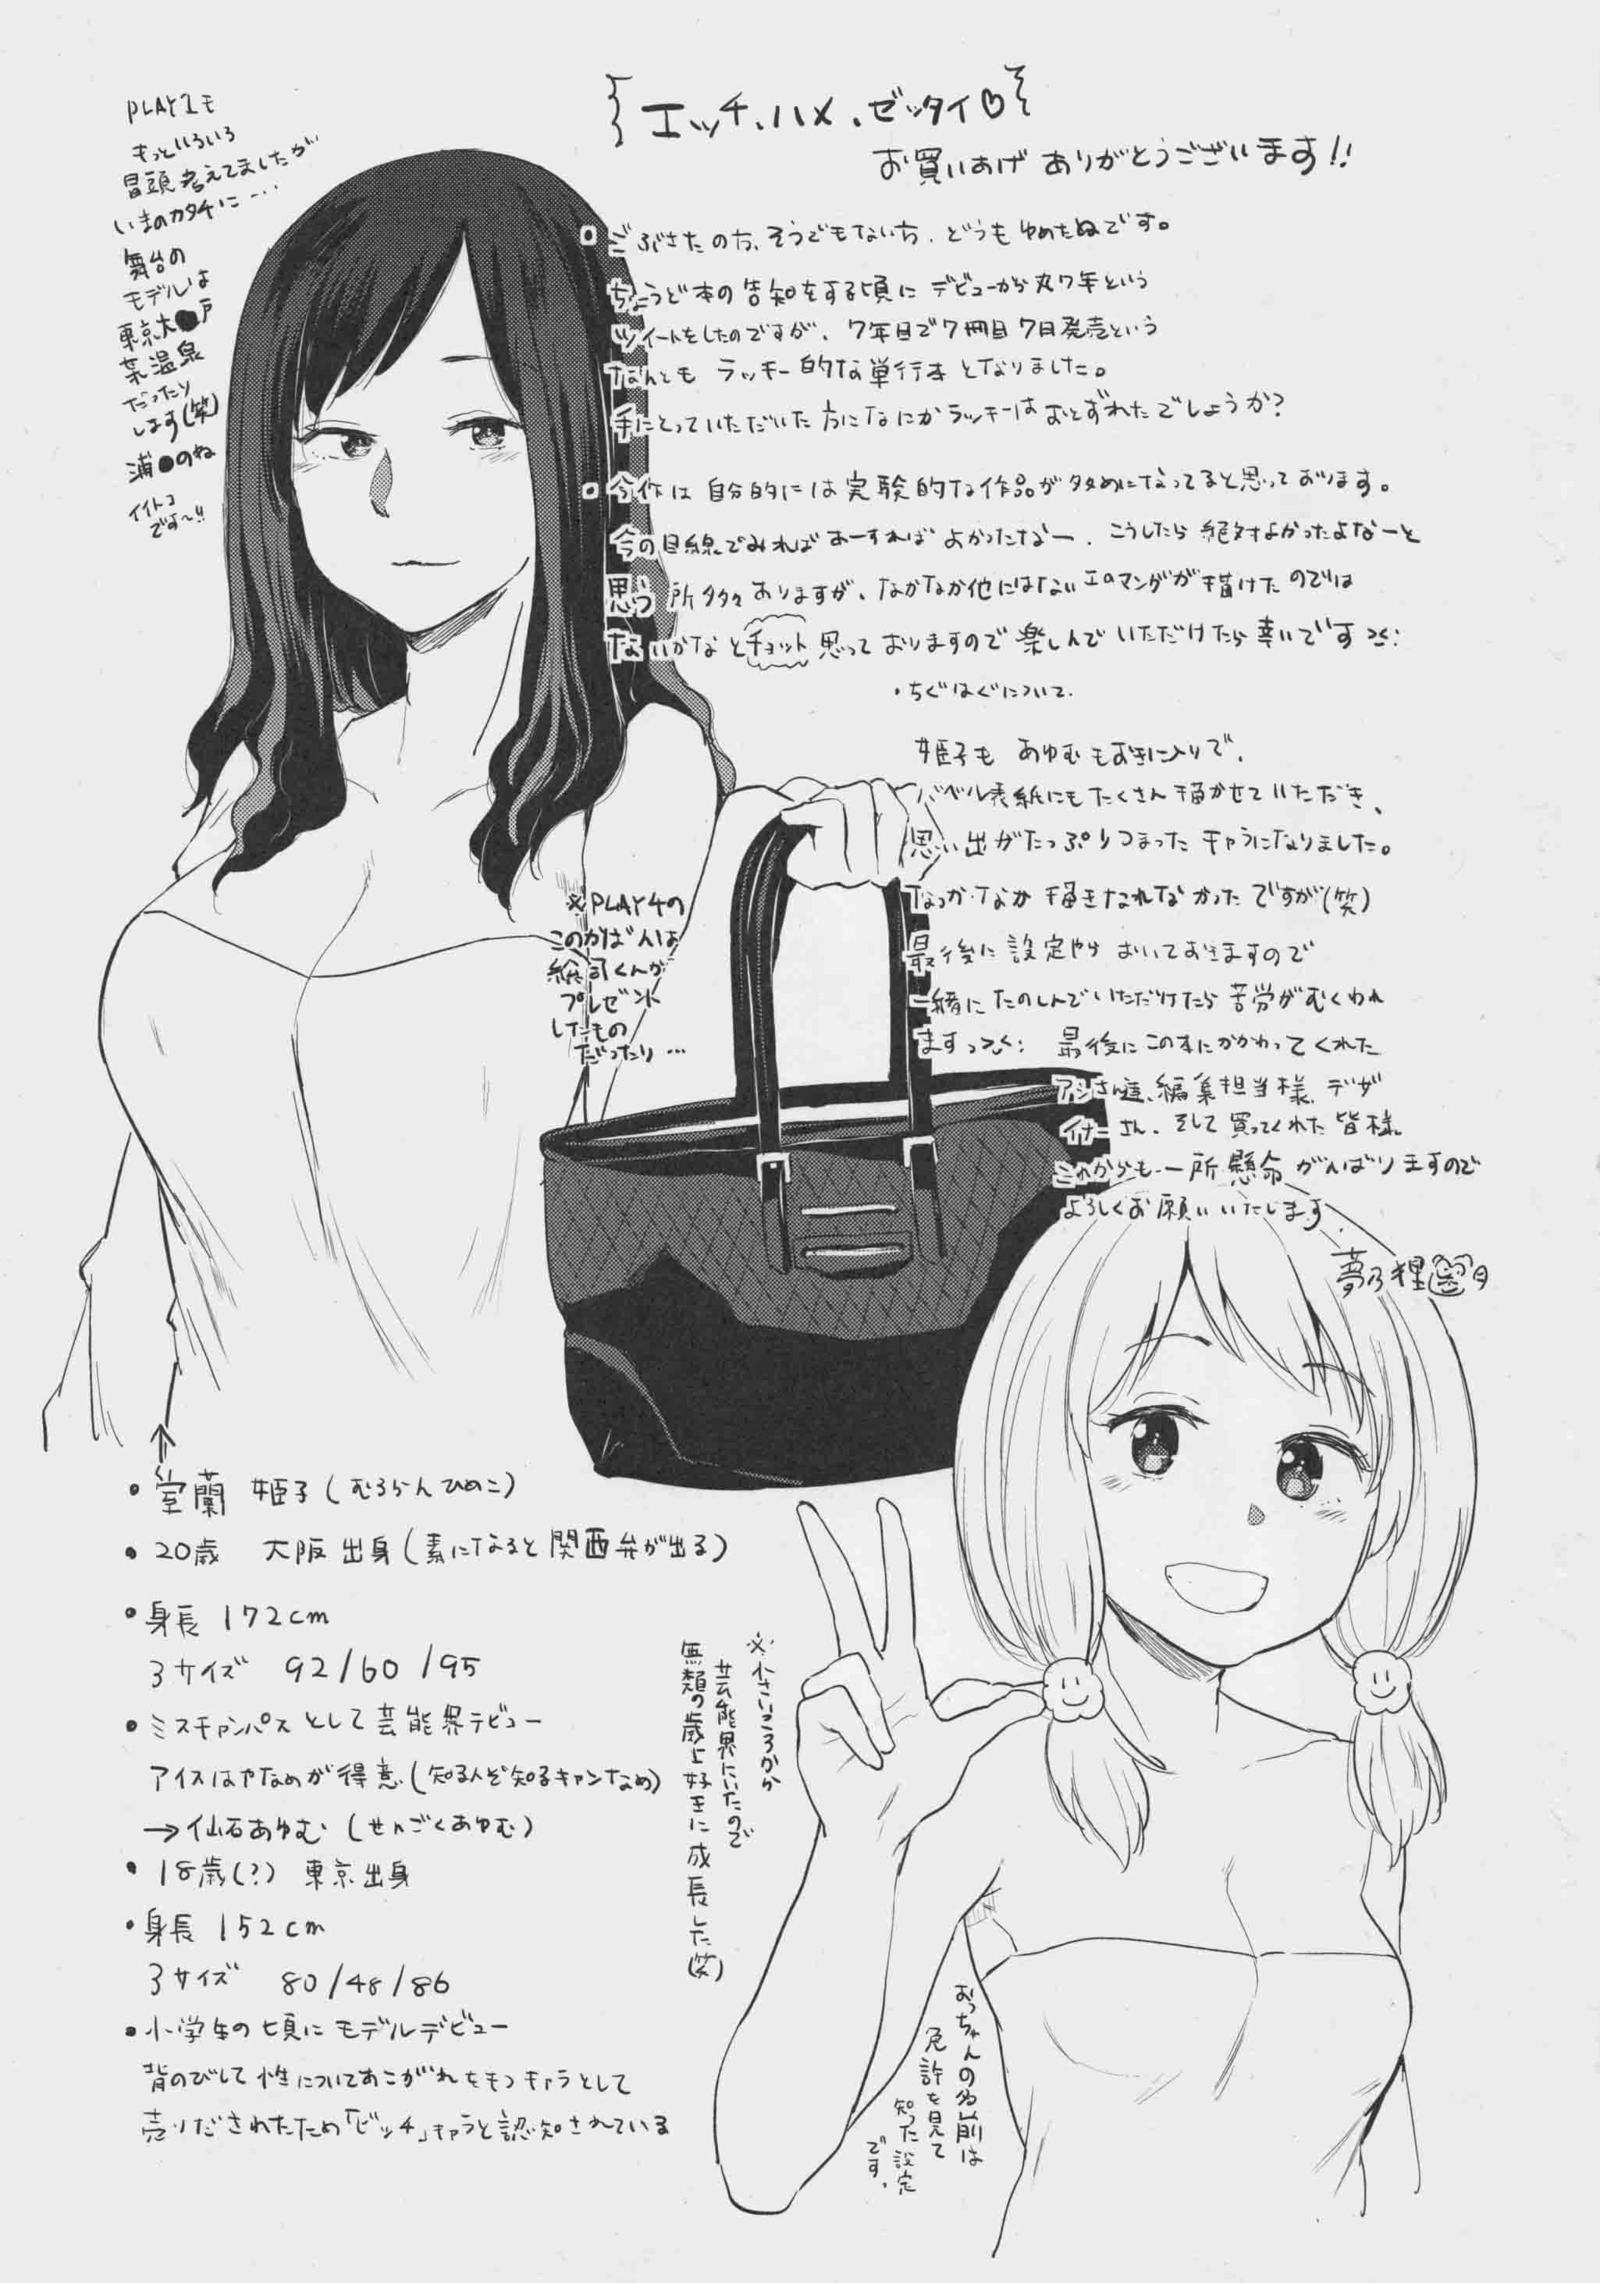 {エッチ、ハメ、ゼッタイ♡}
お買いあげ ありがとうございます!!
PLAY1も
もっといろいろ
冒頭考えてましたが
いまのカタチに…
舞台の
モデルは
東京大●戸
温泉
だったり
します(笑)
浦●のね
イイトコ
です〜!!
ごぶさたの方、そうでもない方、どうもゆめたぬです。
ちょうど本の告知をする頃に デビューから丸7年という
ツイートをしたのですが、7年目で7冊目7日発売という
なんとも ラッキー的な単行本となりました。
手にとっていただいた方になにかラッキーはおとずれたでしょうか?
今作は 自分的には実験的な作品が多めになってると思っております。
今の目線でみれば あーすれば よかったなー、こうしたら絶対よかったよなーと
思う所多々ありますが、なかなか他にはないエロマンガが描けたのでは
ないかなとチョット思っておりますので楽しんでいただけたら幸いです
・ちぐはぐについて.
姫子も あゆむもお気に入りで、
バベル表紙にもたくさん描かせていただき、
思い出がたっぷりつまったキャラになりました。
なっかなか描きなれなかったですが(笑)
最後に設定やら おいておきますので
一緒にたのしんでいただけたら苦労がむくわれ
ます 最後にこの本にかかわってくれた
アシさん達、編集担当様、デザ
イナーさん、そして買ってくれた皆様
これからも一所懸命がんばりますので
よろしくお願いいたします
夢乃狸
※PLAY4の
このかばんは
くんが
プレゼント
したもの
だったり…
・室蘭 姫子(むろらんひめこ)
・20歳 大阪出身(素になると関西弁が出る)
・身長 172cm
3サイズ 92/60/95
・ミスキャンパスとして芸能界デビュー
アイスはやなめが得意(知る人ぞ知るキャンなめ)
→仙石あゆむ(せんごくあゆむ)
・18歳(?) 東京出身
・身長 152cm
3サイズ 80/48/86
・小学生の頃にモデルデビュー
背のびして性についてあこがれをもつキャラとして
売りだされたため「ビッチ」キャラと認知されている
※小さいころから
芸能界にいたので
無類の歳上好きに成長した(笑)
おっちゃんの名前は
免許を見て
知った設定
です。